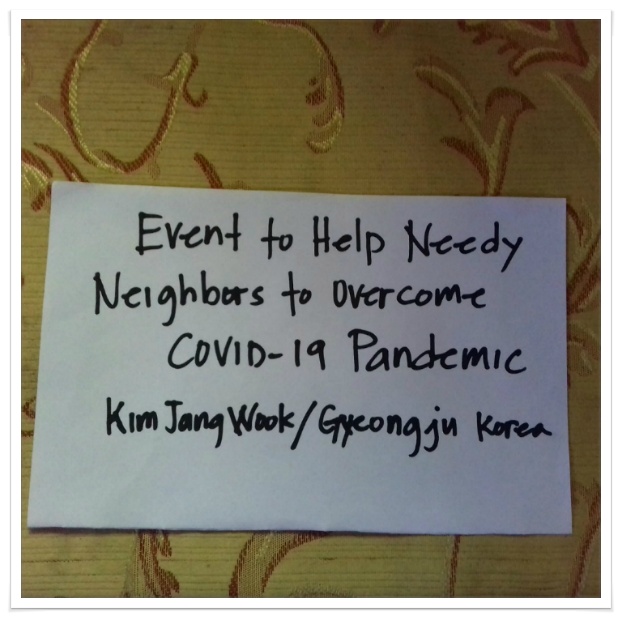 Event to Help Needy
Neighbors to Overcome
COVID-19 Pandemic
Kim Jang Wook/Gyeongju Korea